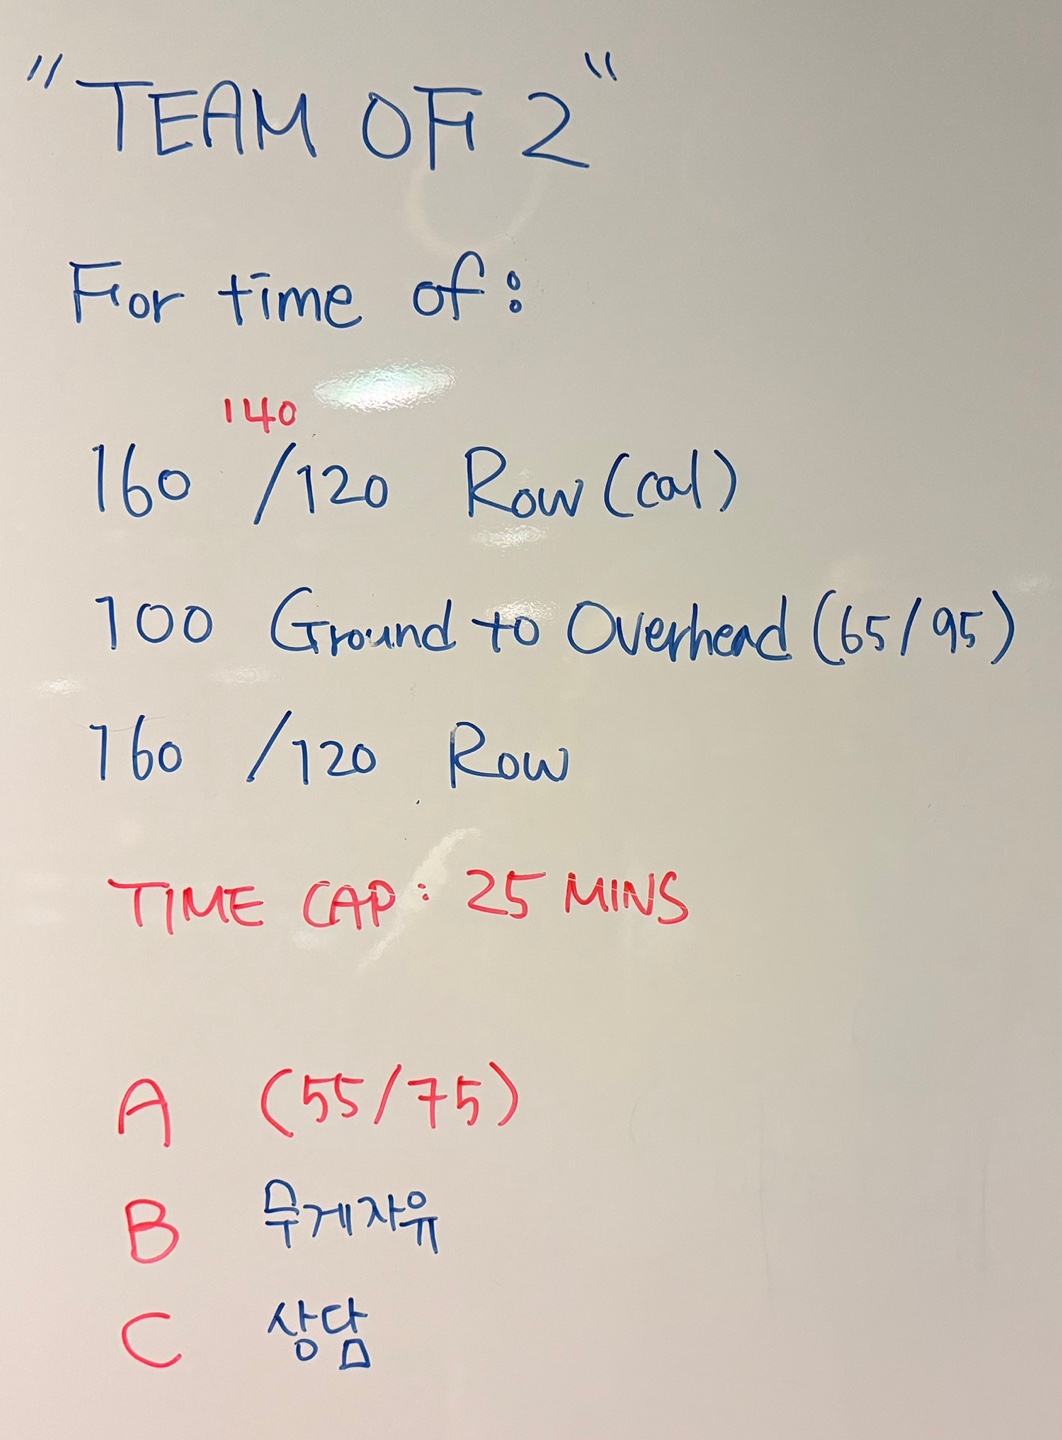 "TEAM OF 2"
For time of:
140
160 /120 Row (cal)
100 Ground to Overhead (65/95)
160 /120 Row
TIME CAP: 25 MINS
A (55/75)
B 무게자유
C 상담